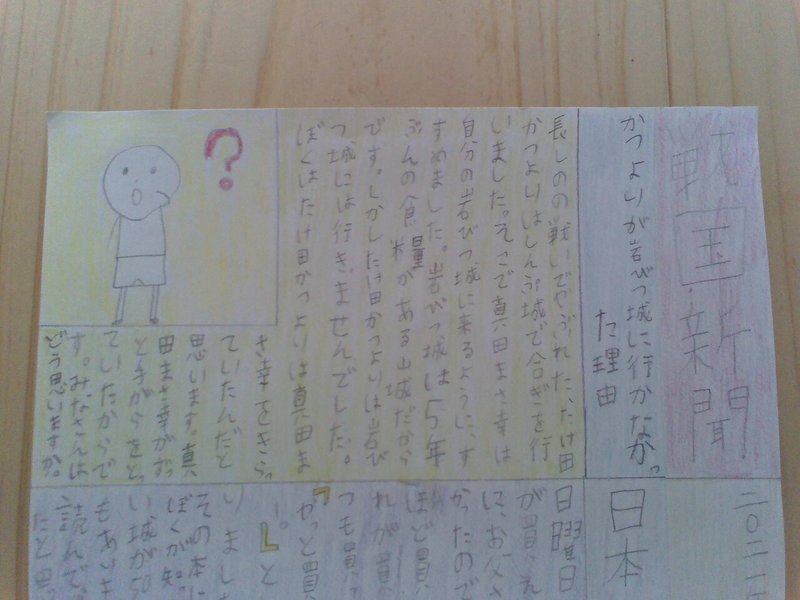 戦国新聞
かつよりが岩びつ城に行かなかっ
た理由
長しのの戦いでやぶれた、たけ田
かつよりはしんぷ城で合ぎを行
いました。そこで真田まさ幸は
自分の岩びつ城に来るように、す
すめました。岩びつ城は5年
ぶんの食量米斗がある山城だから
です。しかしたけ田かつよりは岩び
つ城には行きませんでした。
ぼくはたけ田かつよりは真田ま
さ幸をきらっ
ていたんだと
思います。真
田まさ幸がおっ
と手がらをとっ
ていたからで
す。みなさんは
どう思いますか。
?
二〇二一年
日本
日曜日
が買え
にお父さ
かったので
ほど買
れが買
つも買
やっと買
。』と
りました
その本に
ぼくが知
い城が50
もあいき
読んで
たと思